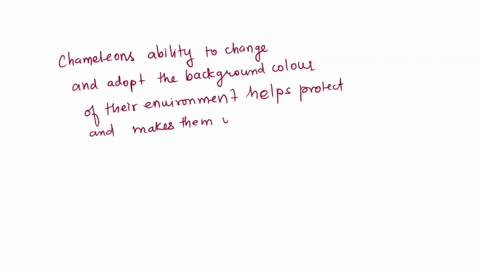 Chameleons ability to change
and adopt the background colour
of their environment helps protect
and makes them